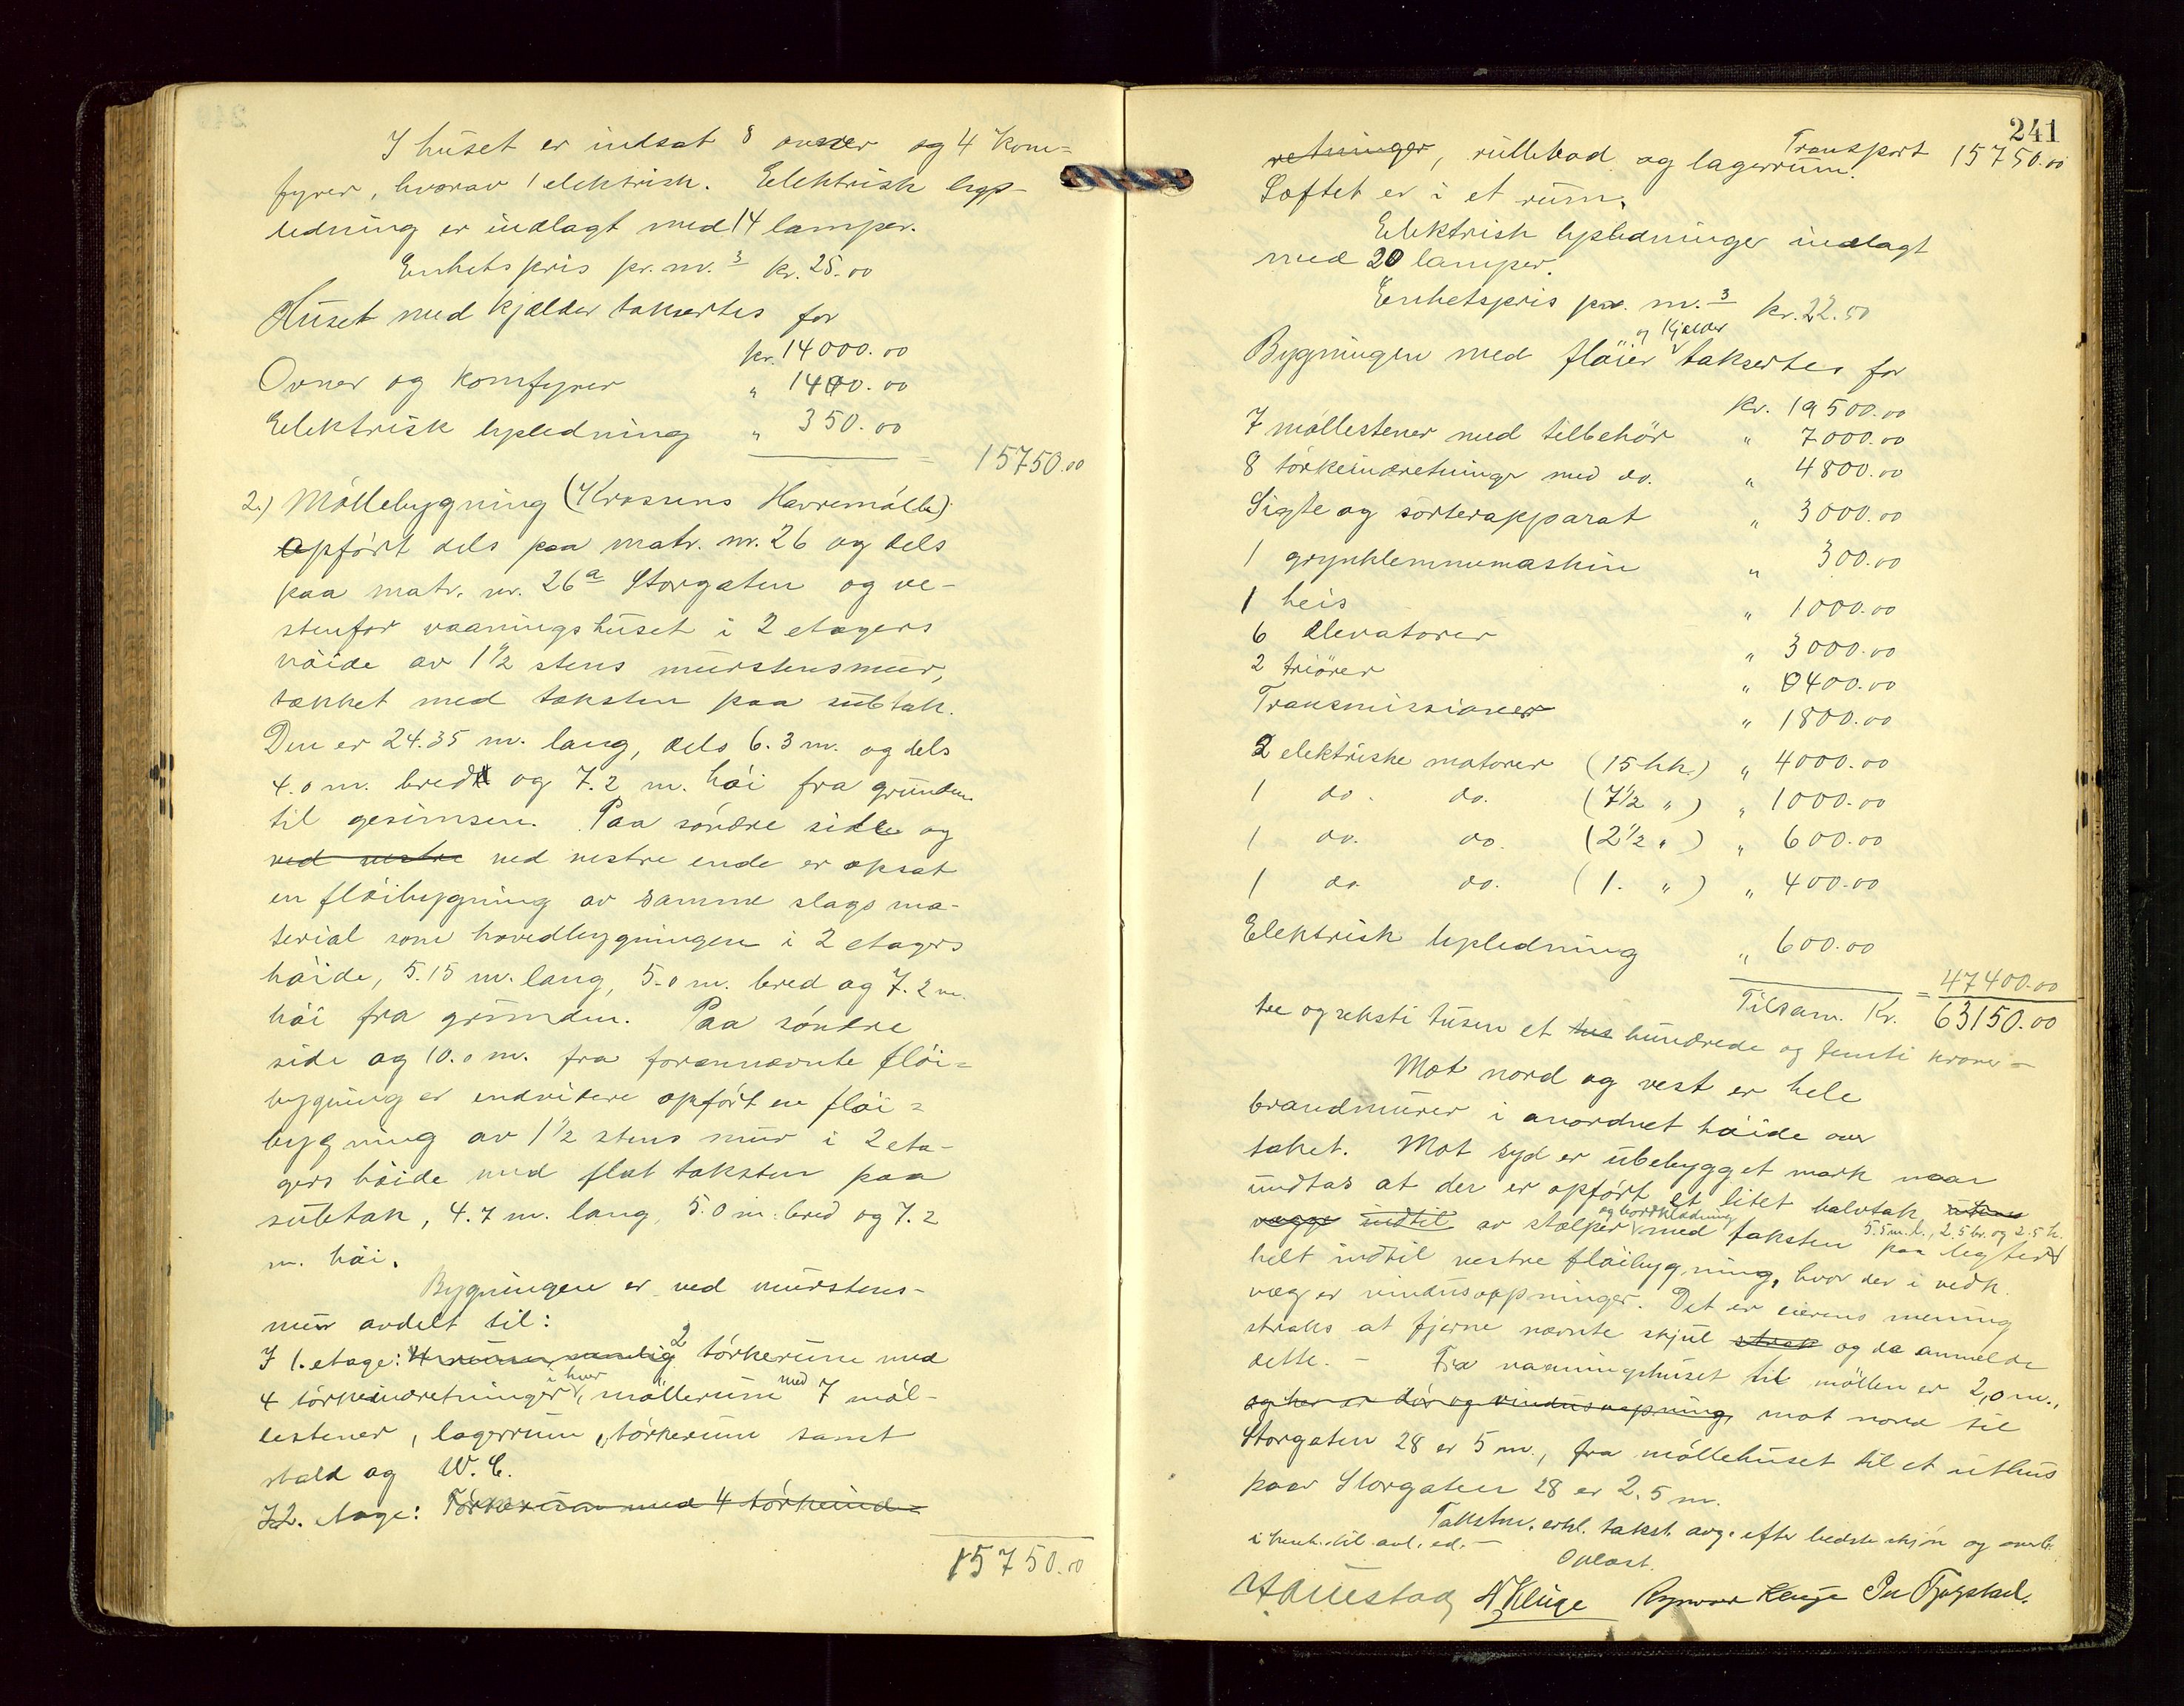 I huset er indsat 8 ovner og 4 kom=
fyrer, hvorav 1 elektrisk. Elektrisk lys-
ledning er indlagt med 14 lamper.
Enhetspris pr. m.3 kr. 25.00
Huset med kjælder takseres for
kr. 14000.00
Ovner og komfyrer " 1400.00
Elektrisk lysledning " 350.00
= 15750.00
2.) Møllebygning (Krossens Havremølle)
opført dels paa matr. nr. 26 og dels
paa matr. nr. 26a Storgaten og ve-
stenfor vaaningshuset i 2 etagers
høide av 1½ stens murstensmur,
tækket med taksten paa sutak.
Den er 24.35 m. lang, dels 6.3 m. og dels
4.0 m. bred og 7.2 m. høi fra grunden
til gesimsen. Paa søndre side og
ved vestre ved vestre ende er opsat
en fløibygning av samme slags ma-
terial som hovedbygningen i 2 etagers
høide, 5.15 m. lang, 5.0 m. bred og 7.2 m.
høi fra grunden. Paa søndre
side og 10.0 m. fra forannævnte fløi=
bygning er endvidere opført en fløi=
bygning av 1½ stens mur i 2 eta-
gers høide med flat taksten paa
sutak, 4.7 m. lang, 5.0 m. bred og 7.2
m. høi.
Bygningen er ved murstens-
mur avdelt til:
I 1. etage: 4 rum, nemlig 2 tørkerum med
4 tørkeindretninger i hver, møllerum med 7 møl-
lestener, lagerrum, tørkerum samt
stald og W.C.
I 2. etage: Tørkerum med 4 tørkeind-
15750.00
241
Transport 15750.00
retninger, rullebod og lagerrum.
Loftet er i et rum.
Elektrisk lysledninger indlagt
med 20 lamper.
Enhetspris pr. m.3 kr. 22.50
og kjælder
Bygningen med fløier takseres for
kr. 19500.00
7 møllestener med tilbehør " 7000.00
8 tørkeindretninger med do. " 4800.00
Sigte og sorterapparat " 3000.00
1 grynklemmemaskin " 300.00
1 heis " 1000.00
6 elevatorer " 3000.00
2 triører " 400.00
Transmissioner " 1800.00
2 elektriske motorer (15 hk.) " 4000.00
1 do. do. (7½ ") " 1000.00
1 do. do. (2½ ") " 600.00
1 do. do. (1. ") " 400.00
Elektrisk lysledning " 600.00
= 47400.00
Tilsam. Kr. 63150.00
tre og seksti tusen et tus hundrede og femti kroner –
Mot nord og vest er hele
brandmurer i anordnet høide over
taket. Mot syd er ubebygget mark naar
undtas at der er opført et litet halvtak uten
og bordklædning 5.5 m. l., 2.5 br. og 2.5 h.
vægge indtil av stolper med taksten paa legter
helt indtil vestre fløibygning, hvor der i vedk.
væg er vindusaapninger. Det er eierens mening
straks at fjerne nævnte skjul strak og da anmelde
dette. – Fra vaaningshuset til møllen er 2,0 m.,
og her er dør og vindusaapning, mot nord til
Storgaten 28 er 5 m., fra møllehuset til et uthus
paa Storgaten 28 er 2.5 m.
Takstm. erkl. takst. avg. efter bedste skjøn og overb.
i henh. til avl. ed. –
Oplæst.
N Kluge